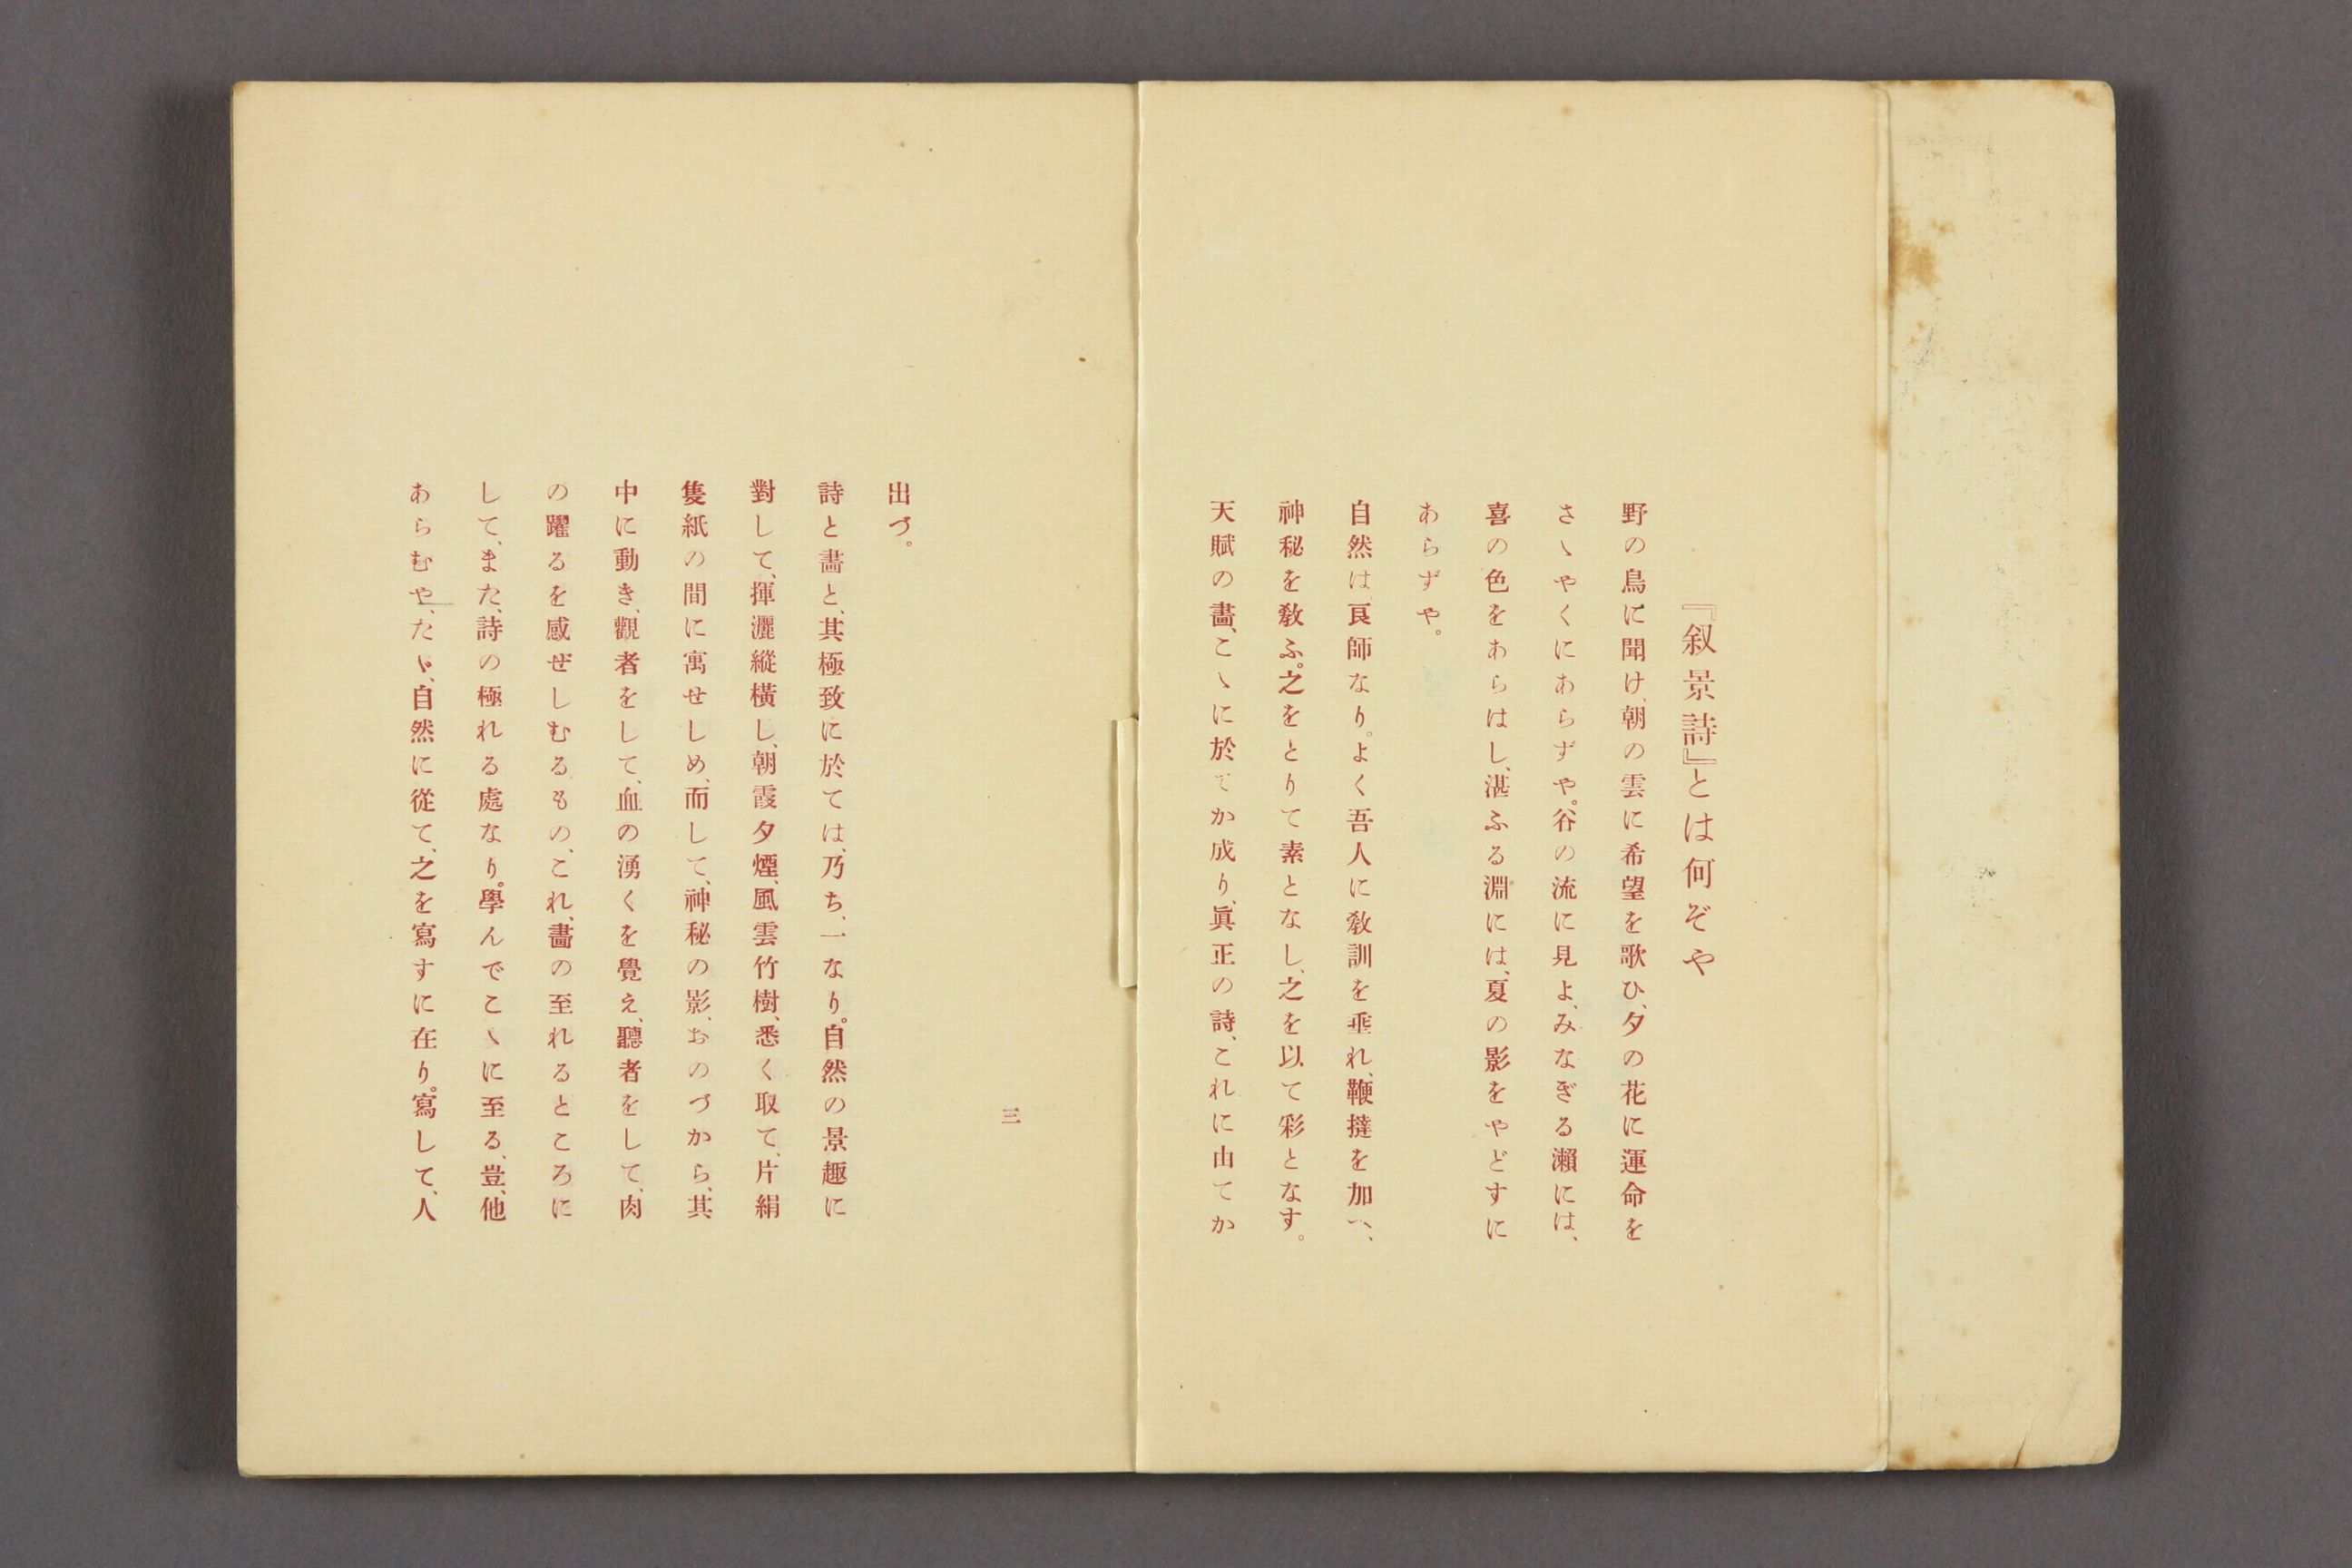 『叙景詩』とは何ぞや
野の鳥に聞け、朝の雲に希望を歌ひ、夕の花に運命を
さゝやくにあらずや。谷の流に見よ、みなぎる瀬には、
喜の色をあらはし、湛ふる淵には、夏の影をやどすに
あらずや。
自然は良師なり。よく吾人に教訓を垂れ、鞭撻を加へ、
神秘を教ふ。之をとりて素となし、之を以て彩となす。
天賦の畵、こゝに於てか成り、眞正の詩、これに由てか
三
出づ。
詩と畵と、其極致に於ては、乃ち、一なり。自然の景趣に
對して、揮灑縱橫し、朝霞夕煙、風雲竹樹、悉く取て、片絹
隻紙の間に寓せしめ、而して、神秘の影、おのづから、其
中に動き、觀者をして、血の湧くを覺え、聽者をして、肉
の躍るを感ぜしむるもの、これ、畵の至れるところに
して、また、詩の極れる處なり。學んでこゝに至る、豈、他
あらむや、たゞ、自然に從て、之を寫すに在り。寫して、人